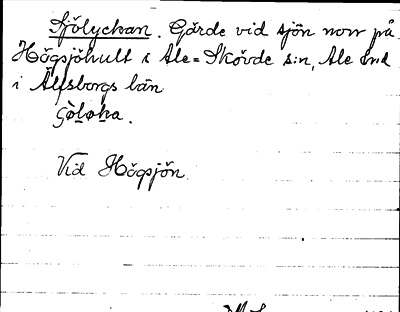 Sjölyckan. Gärde vid sjön norr på
Högsjöhult i Ale-Skövde s:n, Ale hd
i Älvsborgs län
Vid Högsjön